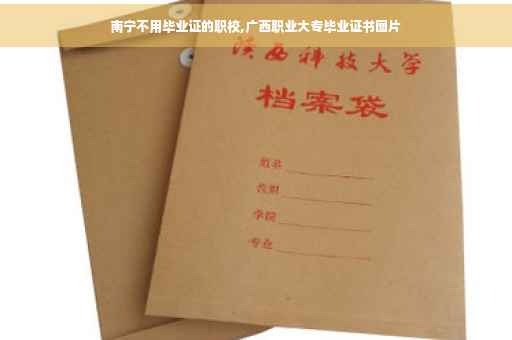 南宁不用毕业证的职校,广西职业大专毕业证书图片
陕西科技大学
档案袋
姓名
学院
专业